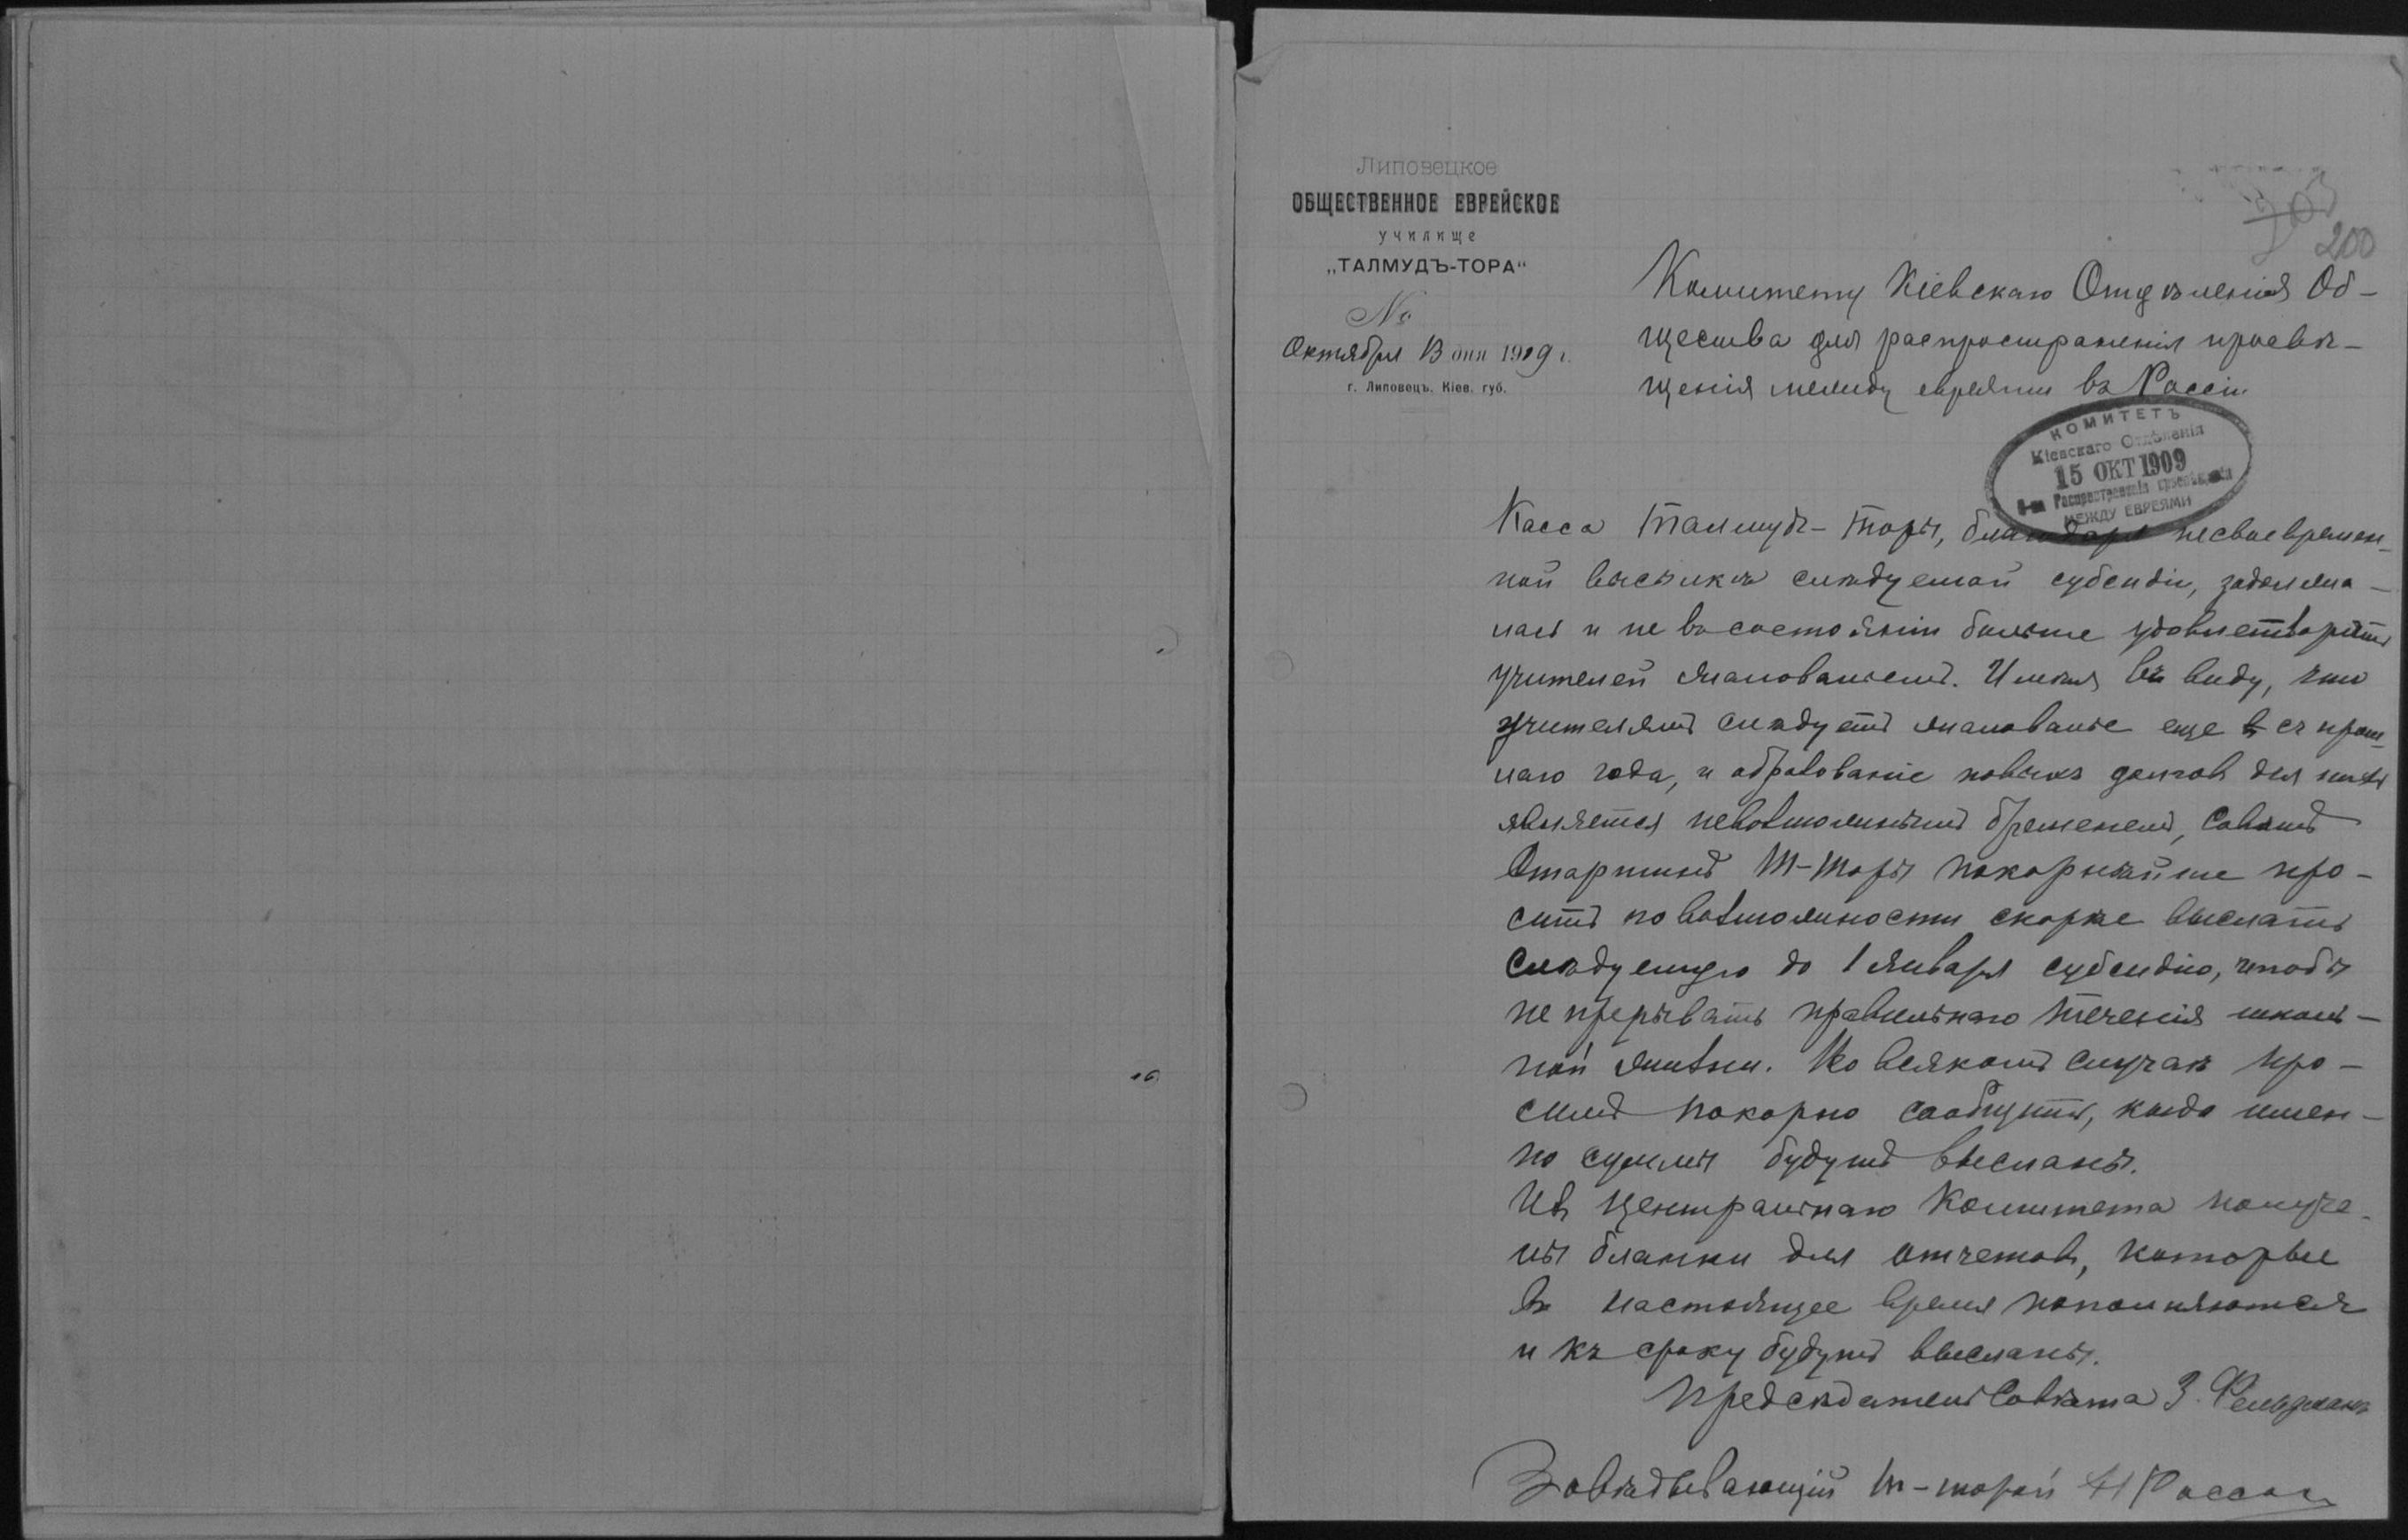 Липовецкое
ОБЩЕСТВЕННОЕ ЕВРЕЙСКОЕ
училище
„ТАЛМУДЪ-ТОРА“
№
Октября 13 дня 1909 г.
г. Липовецъ. Кіев. губ.
200
Комитету Кіевскаго Отдѣленія Об-
щества для распространенія просвѣ-
щенія между евреями въ Россіи
КОМИТЕТЪ
Кіевскаго Отдѣленія
15 ОКТ 1909
О-ва Распространенія просвѣщенія
МЕЖДУ ЕВРЕЯМИ
Касса Талмудъ-Торы, благодаря несвоевремен-
ной высылкѣ слѣдуемой субсидіи, задолжа-
лась и не въ состояніи больше удовлетворить
учителей жалованьемъ. Имѣя въ виду, что
учителямъ слѣдуетъ жалованье еще съ прош-
лаго года, и образованіе новыхъ долговъ для нихъ
является невозможнымъ бременемъ, Совѣтъ
Старшинъ Т-Торы покорнѣйше про-
ситъ по возможности скорѣе выслать
слѣдуемую до 1 января субсидію, чтобы
не прерывать правильнаго теченія школь-
ной жизни. Во всякомъ случаѣ про-
симъ покорно сообщить, когда имен-
но суммы будутъ высланы.
Изъ Центральнаго Комитета получе-
ны бланки для отчетовъ, которые
въ настоящее время пополняются
и къ сроку будутъ высланы.
Предсѣдатель Совѣта З. Фельдманъ
Завѣдывающій Т-торой